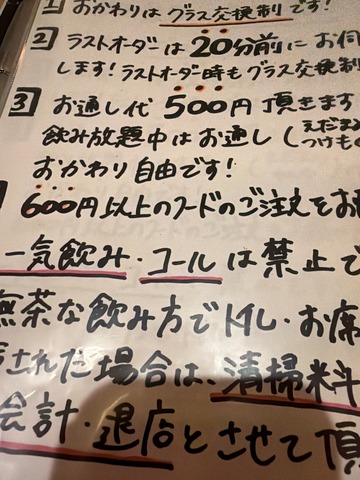 1 おかわりは グラス交換制です!
2 ラストオーダーは20分前にお伺
します!ラストオーダー時もグラス交換制
3 お通し代 500円 頂きます
飲み放題中はお通し(えだまめ
つけもの
おかわり自由です!
600円以上のフードのご注文をお
一気飲み・コールは禁止で
無茶な飲み方でトイレ・お席
された場合は、清掃料
会計・退店とさせて頂